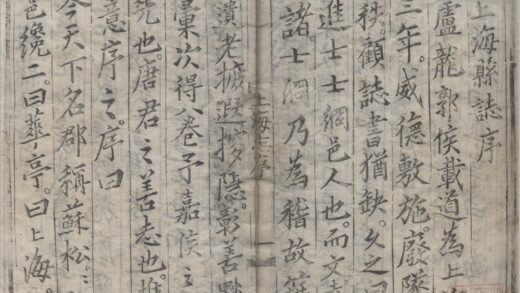 上海縣誌序
盧龍郭侯載道為上
三年。威德敷施。廢隊
秩。顧誌書猶缺。久之
進士士綱邑人也。而文
諸。士綱乃為稽故
上海志序 一
遺老摭遐 隱。彰善
彙次得八卷予嘉侯之
也。唐君之善志也。
意序之。序曰
今天下名郡稱蘇松。
邑纔二。曰華亭。曰上海。